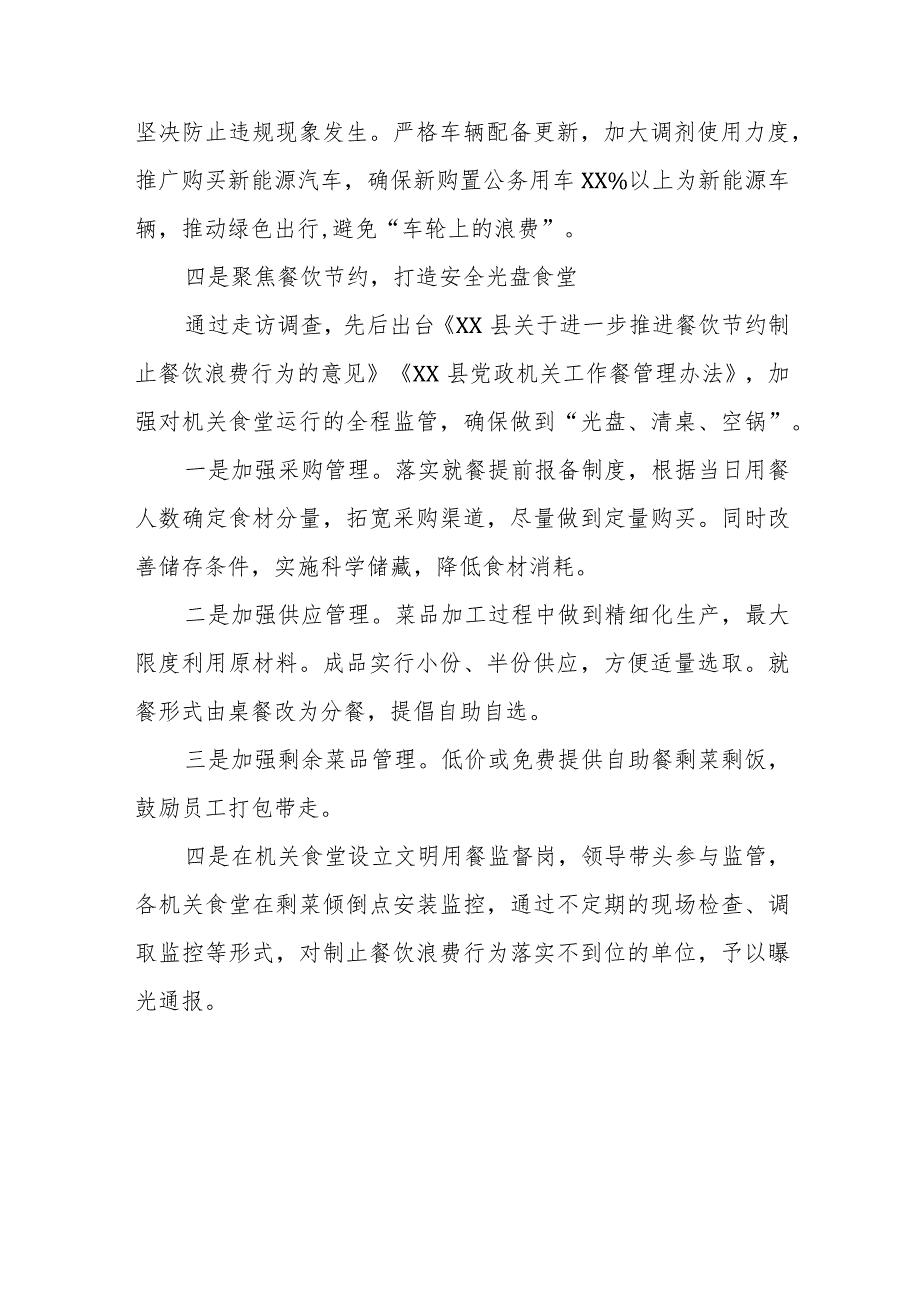 坚决防止违规现象发生。严格车辆配备更新，加大调剂使用力度，
推广购买新能源汽车，确保新购置公务用车 XX%以上为新能源车
辆，推动绿色出行,避免“车轮上的浪费”。
四是聚焦餐饮节约，打造安全光盘食堂
通过走访调查，先后出台《XX 县关于进一步推进餐饮节约制
止餐饮浪费行为的意见》《XX 县党政机关工作餐管理办法》，加
强对机关食堂运行的全程监管，确保做到“光盘、清桌、空锅”。
一是加强采购管理。落实就餐提前报备制度，根据当日用餐
人数确定食材分量，拓宽采购渠道，尽量做到定量购买。同时改
善储存条件，实施科学储藏，降低食材消耗。
二是加强供应管理。菜品加工过程中做到精细化生产，最大
限度利用原材料。成品实行小份、半份供应，方便适量选取。就
餐形式由桌餐改为分餐，提倡自助自选。
三是加强剩余菜品管理。低价或免费提供自助餐剩菜剩饭，
鼓励员工打包带走。
四是在机关食堂设立文明用餐监督岗，领导带头参与监管，
各机关食堂在剩菜倾倒点安装监控，通过不定期的现场检查、调
取监控等形式，对制止餐饮浪费行为落实不到位的单位，予以曝
光通报。